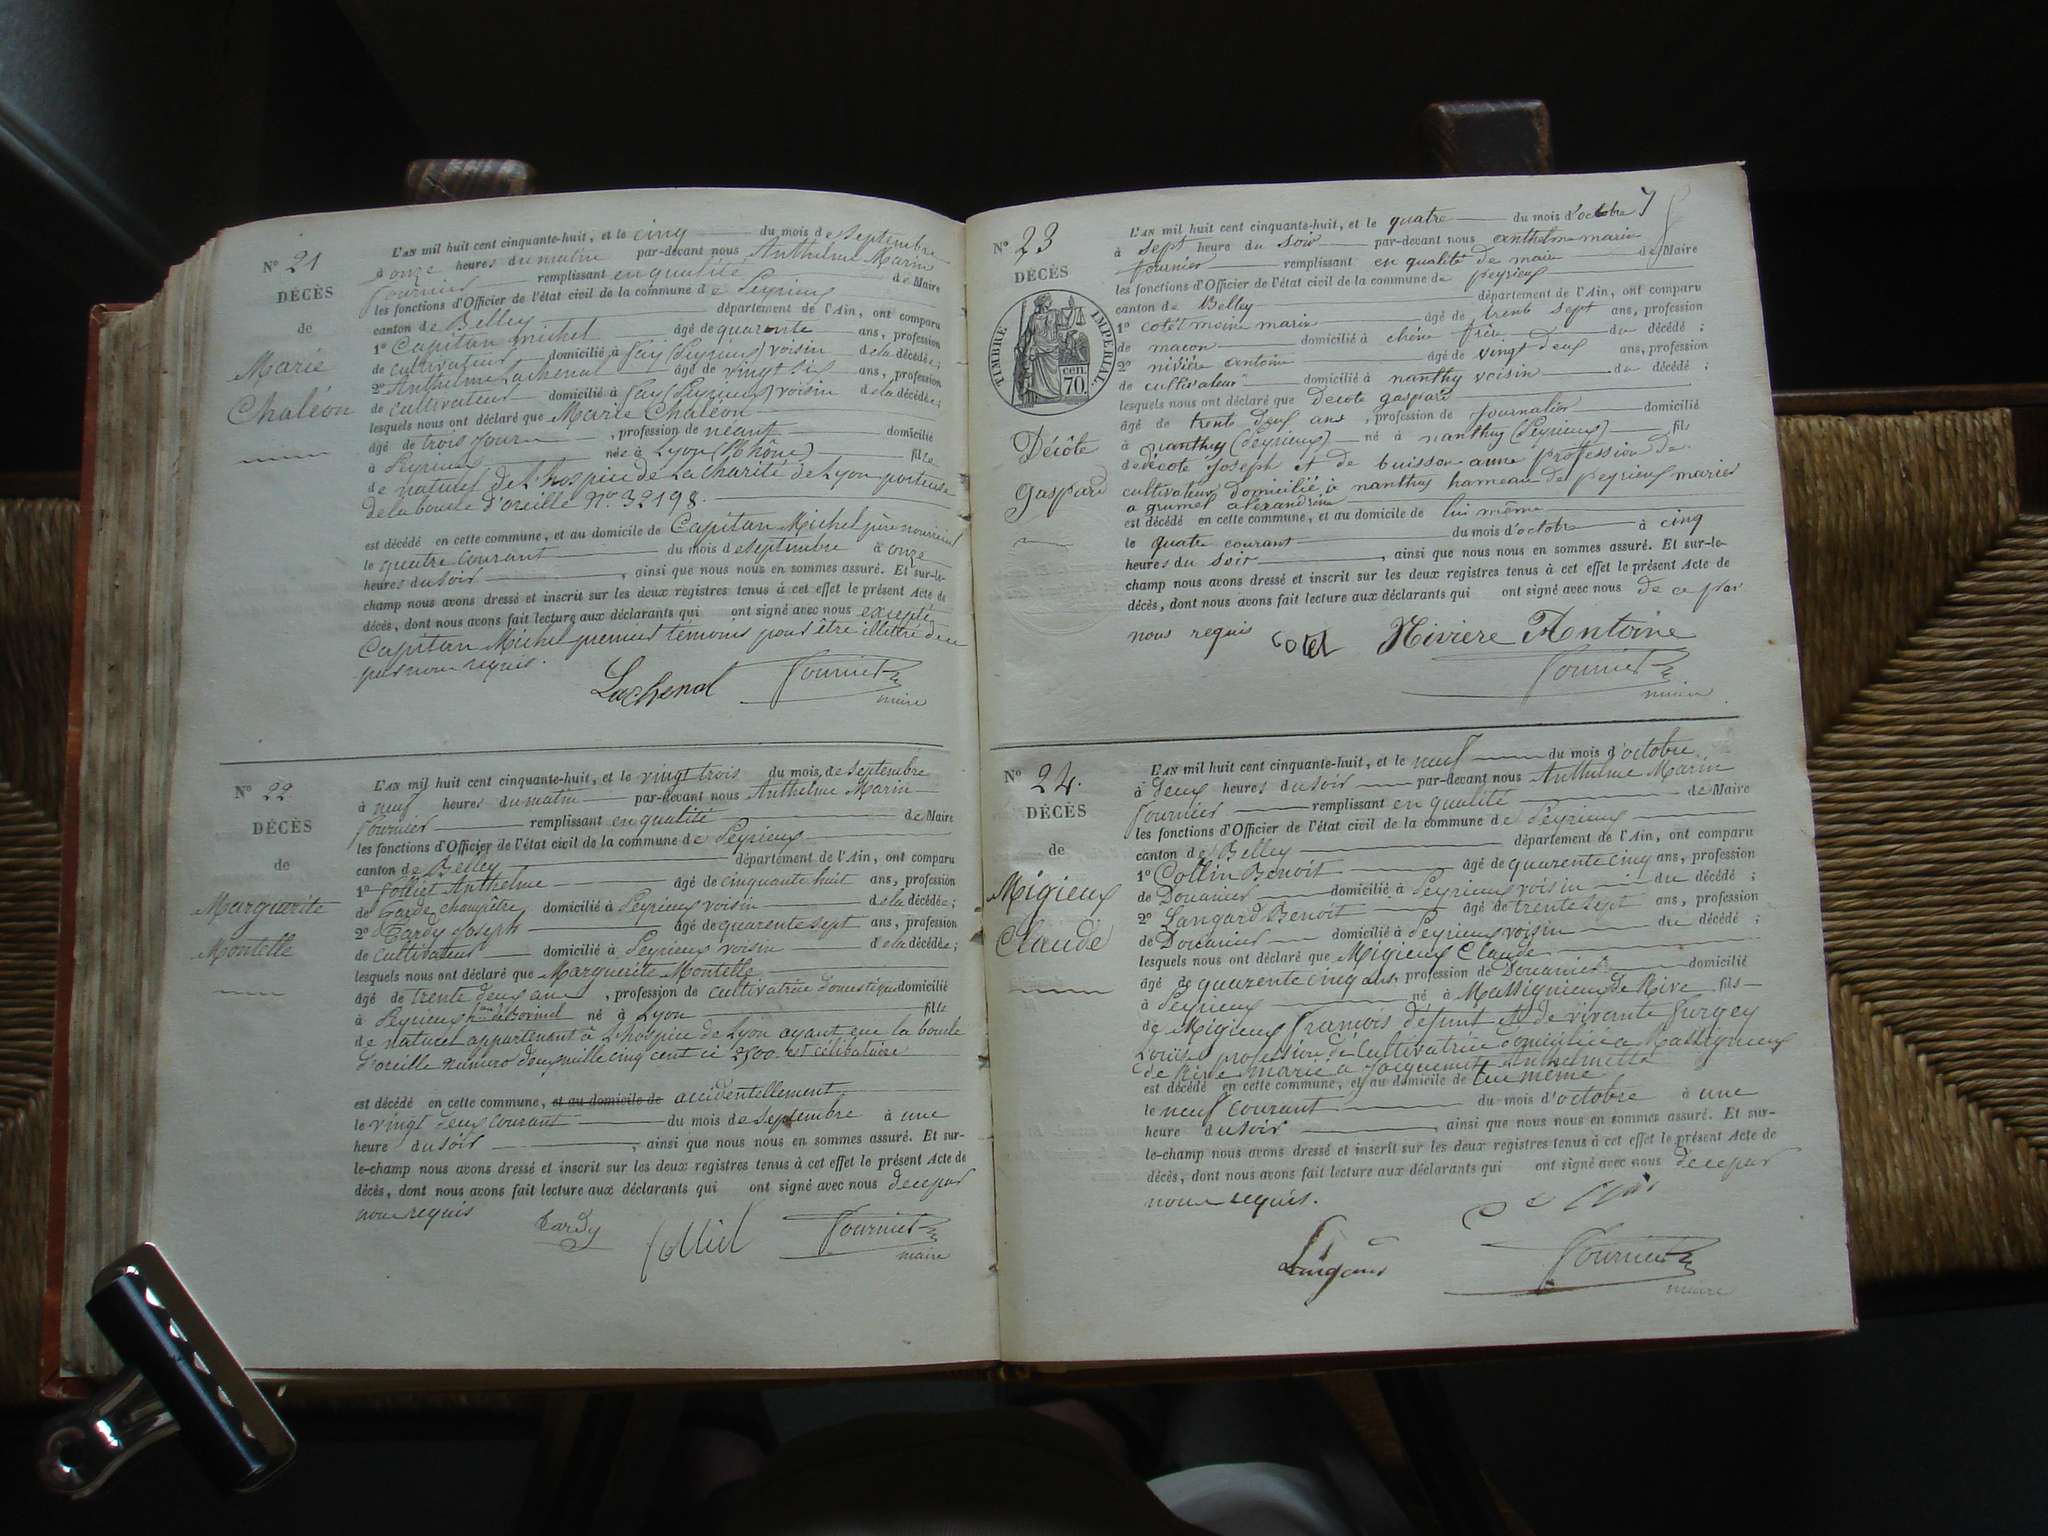 N° 21
DÉCÈS
de
Marie
Chaléon
L'AN mil huit cent cinquante-huit, et le cinq du mois de septembre
à onze heures du matin par-devant nous Anthelme Marin
fournier remplissant en qualité de Maire
les fonctions d'Officier de l'état civil de la commune de Peyrieux
canton de Belley département de l'Ain, ont comparu
1° Capitan michel âgé de quarante ans, profession
de cultivateur domicilié à Fay (Peyrieux) voisin de la décédée;
2° Anthelme Lachenal âgé de vingt six ans, profession
de cultivateur domicilié à Fay (Peyrieux) voisin de la décédée;
lesquels nous ont déclaré que Marie Chaléon
âgé de trois jours, profession de néant domicilié
à Peyrieux née à Lyon (Rhône) fille
de naturel de l'hospice de La Charité de Lyon porteuse
de la boucle d'oreille N° 32198.
est décédé en cette commune, et au domicile de Capitan Michel père nourricier
le quatre courant du mois de septembre à onze
heures du soir, ainsi que nous nous en sommes assuré. Et sur-le-
champ nous avons dressé et inscrit sur les deux registres tenus à cet effet le présent Acte de
décès, dont nous avons fait lecture aux déclarants qui ont signé avec nous excepté
Capitan Michel premier témoins pour être illittré de ce
par nous requis.
Lachenal fournier
maire
N° 22
DÉCÈS
de
Marguerite
Montelle
L'AN mil huit cent cinquante-huit, et le vingt trois du mois de septembre
à neuf heures du matin par-devant nous Anthelme Marin
fournier remplissant en qualité de Maire
les fonctions d'Officier de l'état civil de la commune de Peyrieux
canton de Belley département de l'Ain, ont comparu
1° folliet Anthelme âgé de cinquante huit ans, profession
de Garde champêtre domicilié à Peyrieux voisin de la décédée;
2° Tardy Joseph âgé de quarente sept ans, profession
de cultivateur domicilié à Peyrieux voisin de la décédée;
lesquels nous ont déclaré que Marguerite Montelle
âgé de trente deux ans, profession de cultivatrice domestique domicilié
à Peyrieux né à Lyon fille
de naturel appartenant à l'hospice de Lyon ayant eue la boucle
d'oreille numéro deux mille cinq cent ci 2500. est célibataire
est décédé en cette commune, et au domicile de accidentellement
le vingt deux courant du mois de septembre à une
heure du soir, ainsi que nous nous en sommes assuré. Et sur-
le-champ nous avons dressé et inscrit sur les deux registres tenus à cet effet le présent Acte de
décès, dont nous avons fait lecture aux déclarants qui ont signé avec nous de ce par
nous requis
Tardy folliet fournier
maire
7
N° 23
DÉCÈS
TIMBRE IMPERIAL
70 cen.
Décôte
gaspard
L'AN mil huit cent cinquante-huit, et le quatre du mois d'octobre
à sept heure du soir par-devant nous anthelme marin
fournier remplissant en qualité de maire de Maire
les fonctions d'Officier de l'état civil de la commune de peyrieux
canton de Belley département de l'Ain, ont comparu
1° cotet moine marin âgé de trente sept ans, profession
de maçon domicilié à chêne frère du décédé;
2° rivière antoine âgé de vingt deux ans, profession
de cultivateur domicilié à nanthuy voisin du décédé;
lesquels nous ont déclaré que decote gaspard
âgé de trente deux ans, profession de journalier domicilié
à nanthuy (Peyrieux) né à nanthuy (Peyrieux) fils
de décote joseph et de buisson anne profession de
cultivateur domicilié à nanthuy hameau de peyrieux marier
a grumet alexandrine
est décédé en cette commune, et au domicile de lui même
le quatre courant du mois d'octobre à cinq
heures du soir, ainsi que nous nous en sommes assuré. Et sur-le-
champ nous avons dressé et inscrit sur les deux registres tenus à cet effet le présent Acte de
décès, dont nous avons fait lecture aux déclarants qui ont signé avec nous de ce par
nous requis cotet Rivière Antoine
fournier
maire
N° 24.
DÉCÈS
de
Migieux
Claude
L'AN mil huit cent cinquante-huit, et le neuf du mois d'octobre
à deux heures du soir par-devant nous Anthelme Marin
fournier remplissant en qualité de Maire
les fonctions d'Officier de l'état civil de la commune de Peyrieux
canton de Belley département de l'Ain, ont comparu
1° Collin Benoit âgé de quarente cinq ans, profession
de Douanier domicilié à Peyrieux voisin du décédé;
2° Langard Benoit âgé de trente sept ans, profession
de Douanier domicilié à Peyrieux voisin du décédé;
lesquels nous ont déclaré que Migieux Claude
âgé de quarente cinq ans, profession de Douanier domicilié
à Peyrieux né à Massignieux de Rive fils
de Migieux Francois défunt et de vivante Furgey
Louise profession de Cultivatrice domiciliée a Massignieux
de Rive marié a Jacquemet Anthelmette
est décédé en cette commune, et au domicile de lui même
le neuf courant du mois d'octobre à une
heure du soir, ainsi que nous nous en sommes assuré. Et sur-
le-champ nous avons dressé et inscrit sur les deux registres tenus à cet effet le présent Acte de
décès, dont nous avons fait lecture aux déclarants qui ont signé avec nous de ce par
nous requis.
Langard fournier
maire